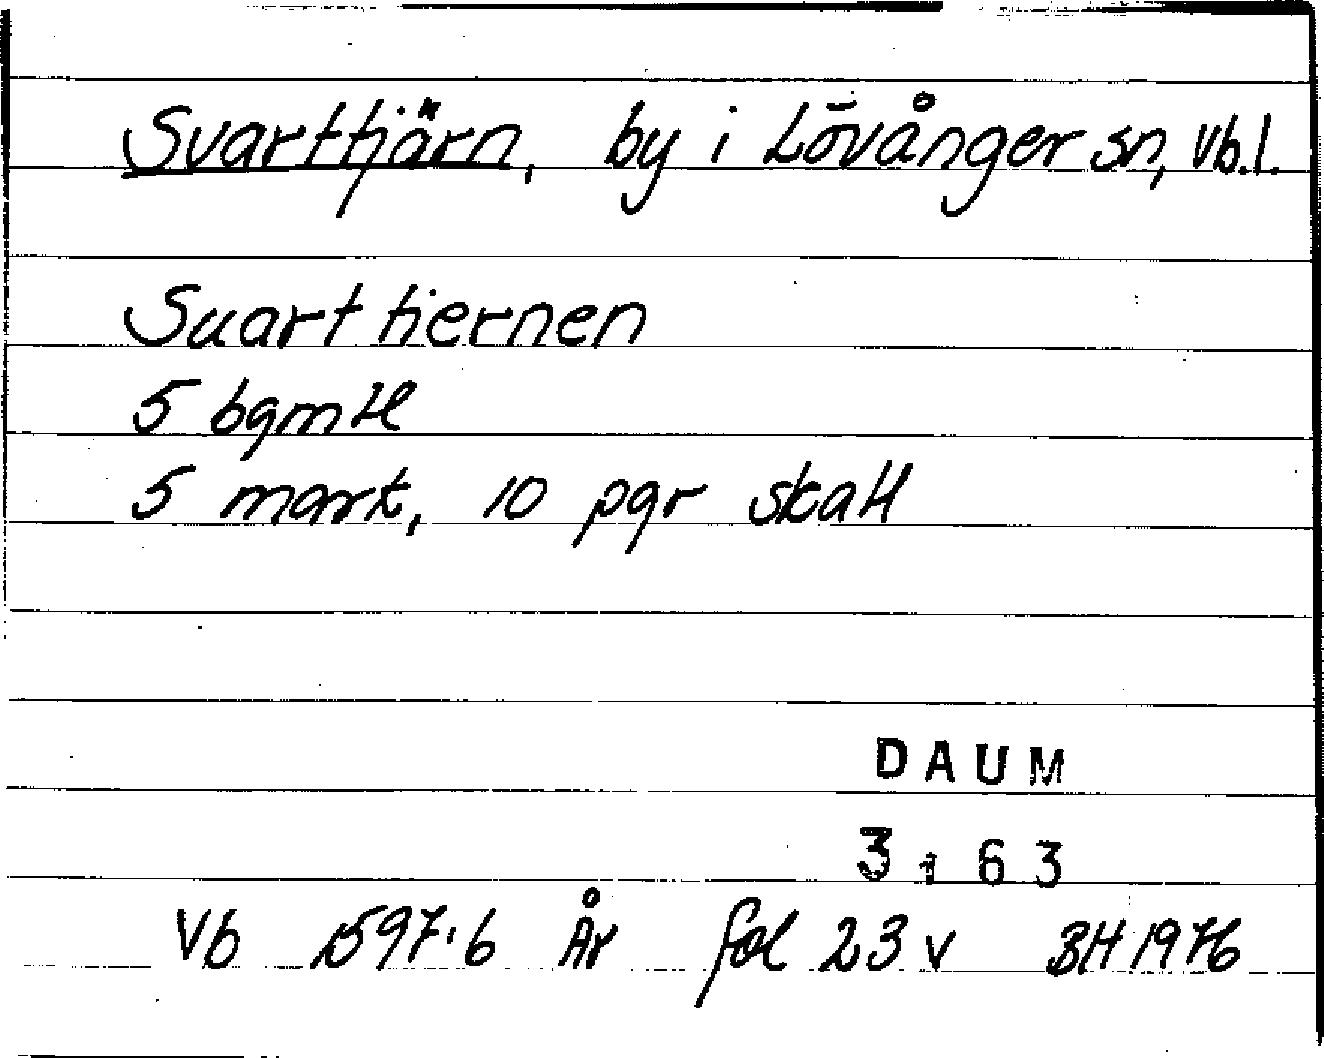 Svarttjärn, by i Lövånger sn, Vb.l.
Suart tiernen
5 bgmtl
5 mark, 10 pgr skatt
DAUM
3163
Vb 1597:6 År fol 23 v BH 1976